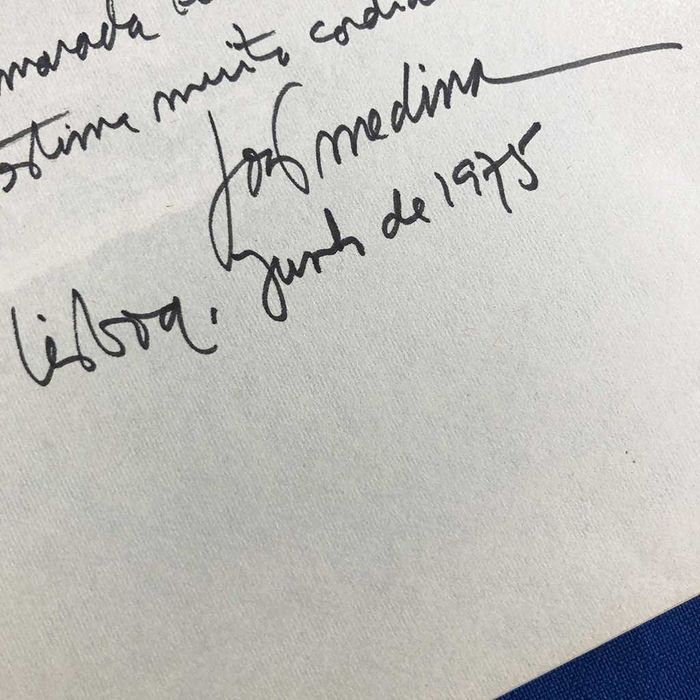 marada
estima muito cordia
João Medina
Lisboa, junho de 1975